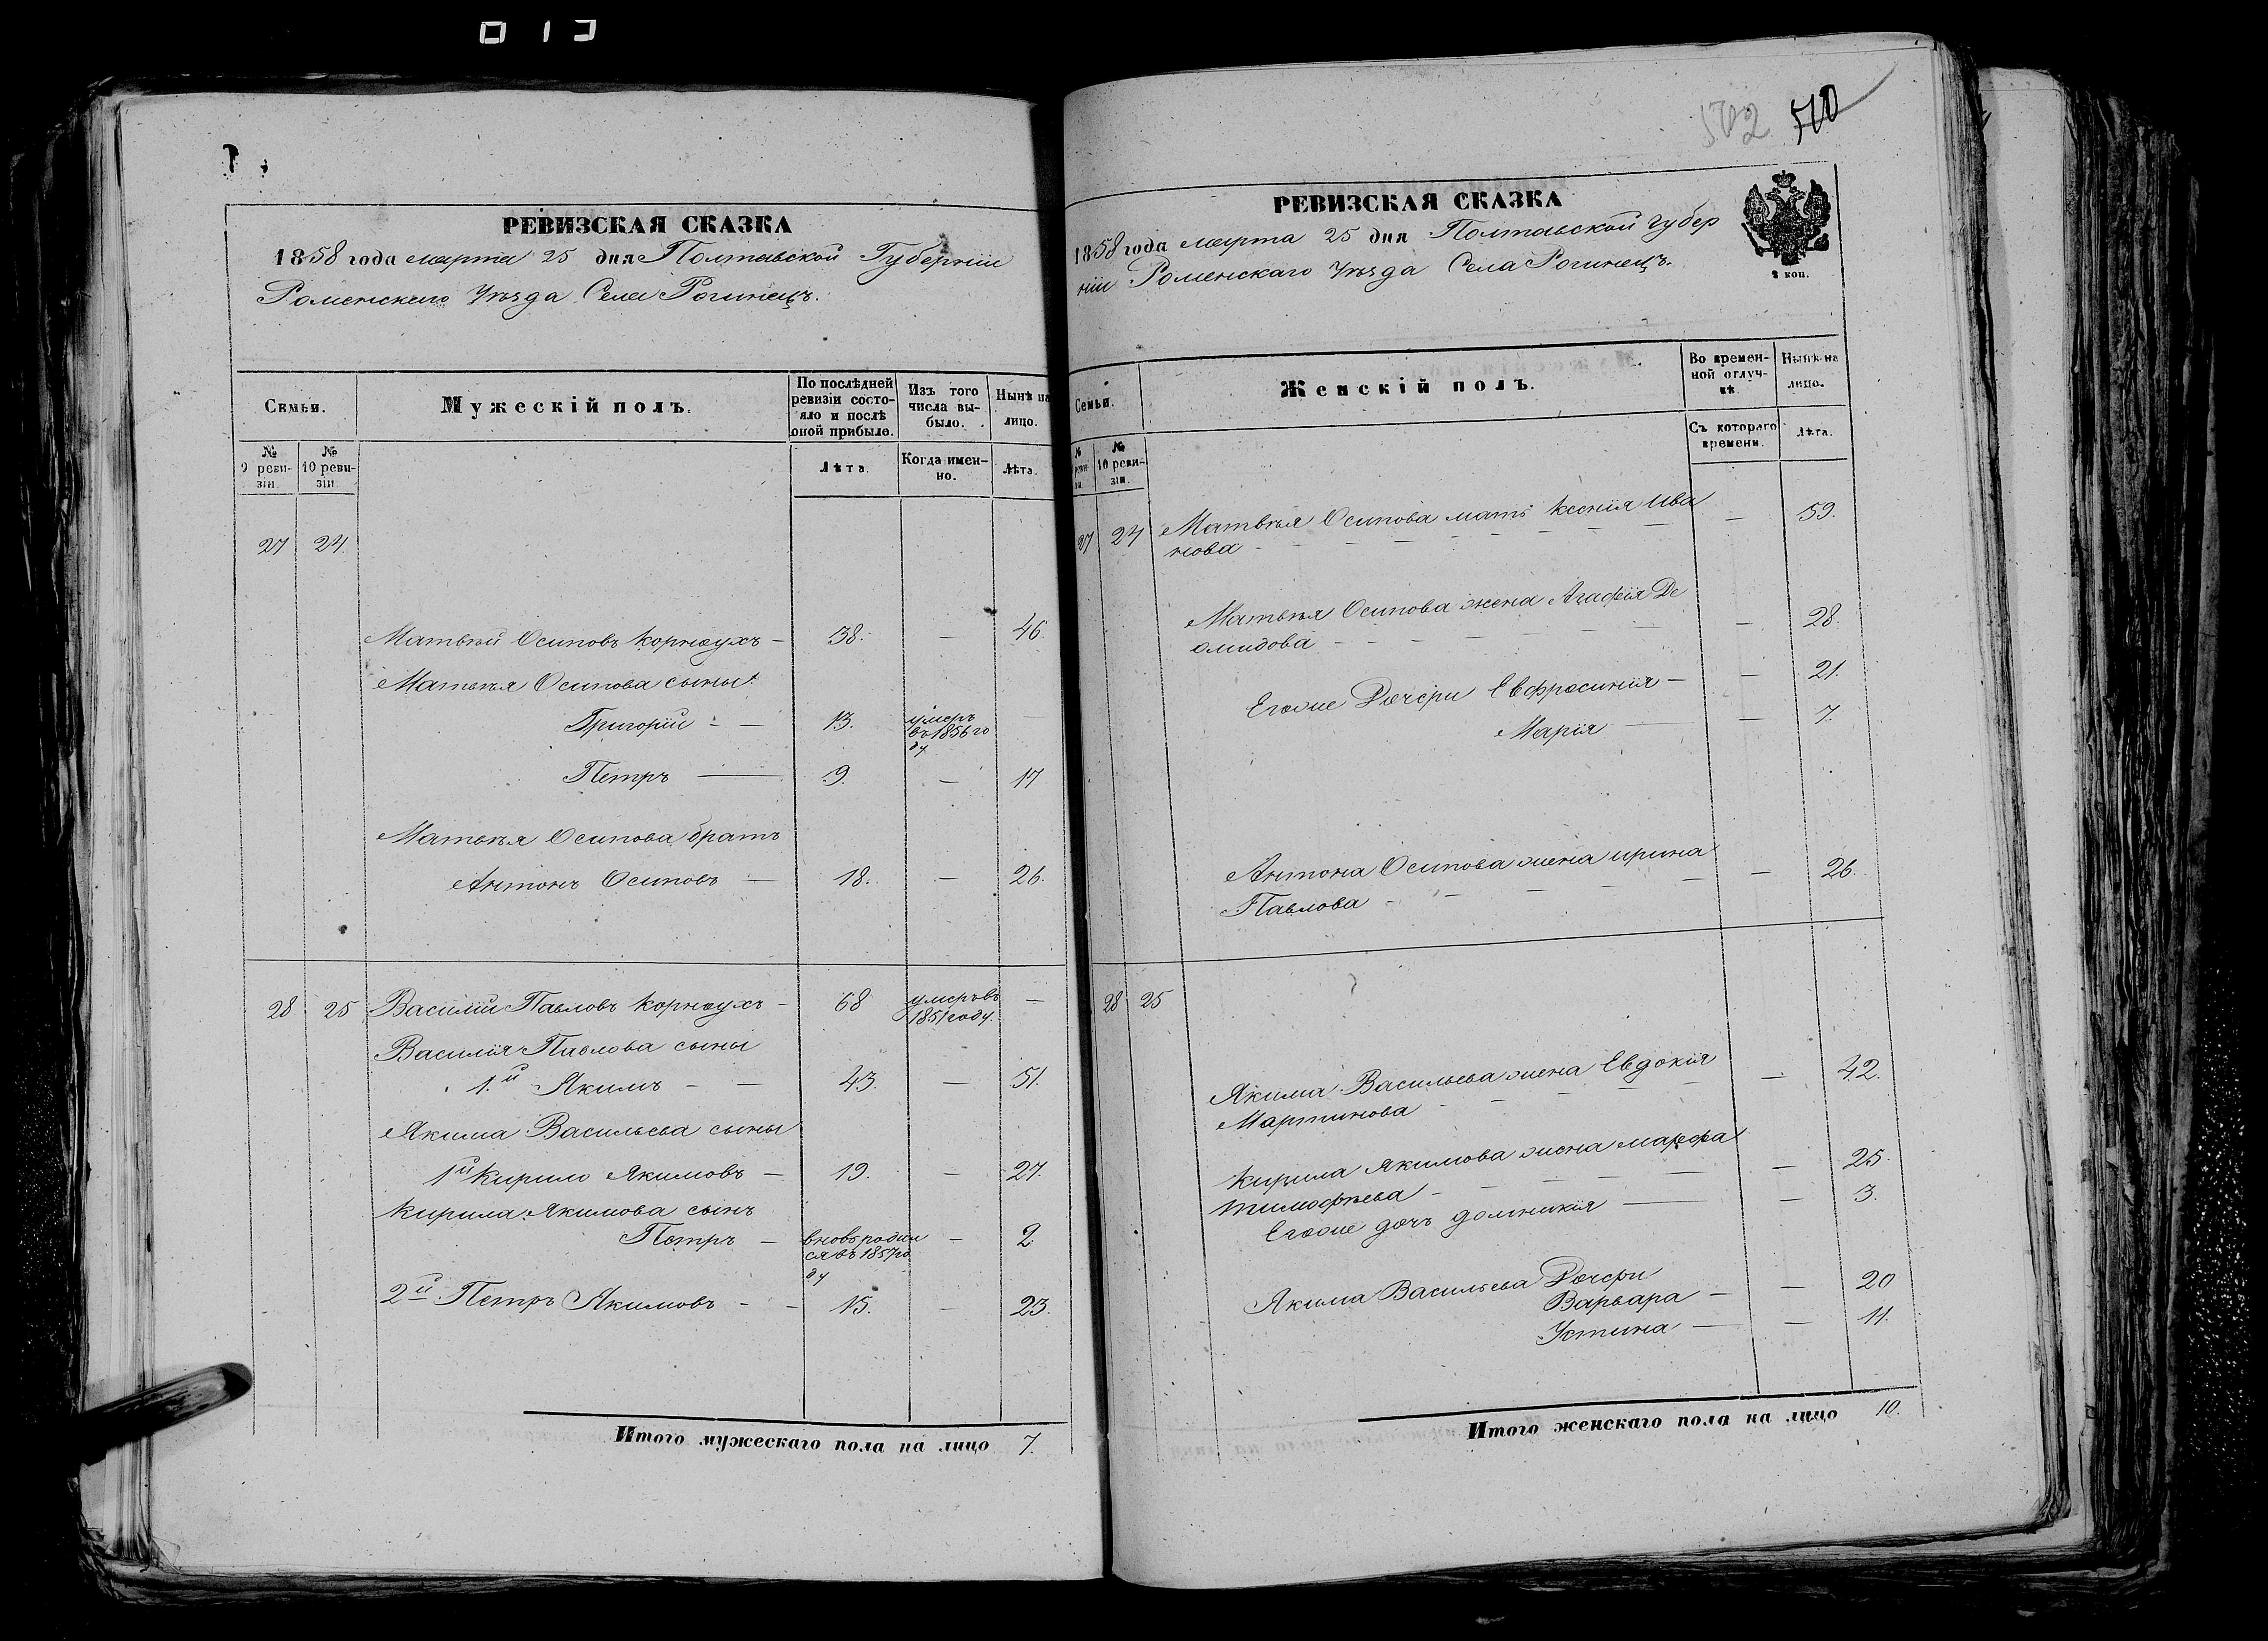 013
РЕВИЗСКАЯ СКАЗКА
1858 года марта 25 дня Полтавской Губерніи
Роменскаго Уѣзда Села Рогинецъ.
Семьи.
Мужескій полъ.
По послѣдней ревизіи состояло и послѣ оной прибыло.
Изъ того числа выбыло.
Нынѣ на лицо.
№ 9 ревизіи
№ 10 ревизіи
Лѣта
Когда именно.
Лѣта.
27 24
Матвѣй Осиповъ Корноухъ — 38. — 46.
Матвѣя Осипова сыны:
Григорій — 13. умеръ
въ 1856 го
ду
Петръ — 9. — 17
Матвѣя Осипова братъ
Антонъ Осиповъ — 18. — 26.
28 25 Василій Павловъ Корноухъ — 68 умеръ въ —
1851 году.
Василія Павлова сыны
1.й Якимъ — — 43. — 51.
Якима Васильева сыны
1й Кирило Якимовъ — 19. — 27.
Кирила Якимова сынъ
Петръ — вновь родил — 2
ся въ 1857 го
ду
2й Петръ Якимовъ - - 15. — 23.
Итого мужескаго пола на лицо 7.
502 510
РЕВИЗСКАЯ СКАЗКА
1858 года марта 25 дня Полтавской Губер
ніи Роменскаго Уѣзда Села Рогинецъ.
коп.
Семьи.
Женскій полъ.
Во временной отлучкѣ.
Нынѣ на лицо.
№ ревизіи
№ 10 ревизіи.
Съ котораго времени.
Лѣта.
27 24 Матвѣя Осипова мать Ксенія Ива — 59.
нова
Матвѣя Осипова жена Агафія Де — 28.
омидова
Егоже Дочери Евфросинія — — 21.
Марія — — 7.
Антона Осипова жена Ирина — 26.
Павлова
28 25
Якима Васильева жена Евдокія — 42.
Мартинова
Кирила Якимова жена Марфа — 25.
Тимофѣева
Егоже дочь Домникія — — 3.
Якима Васильева Дочери
Варвара — — 20
Устина — — 11.
Итого женскаго пола на лицо 10.